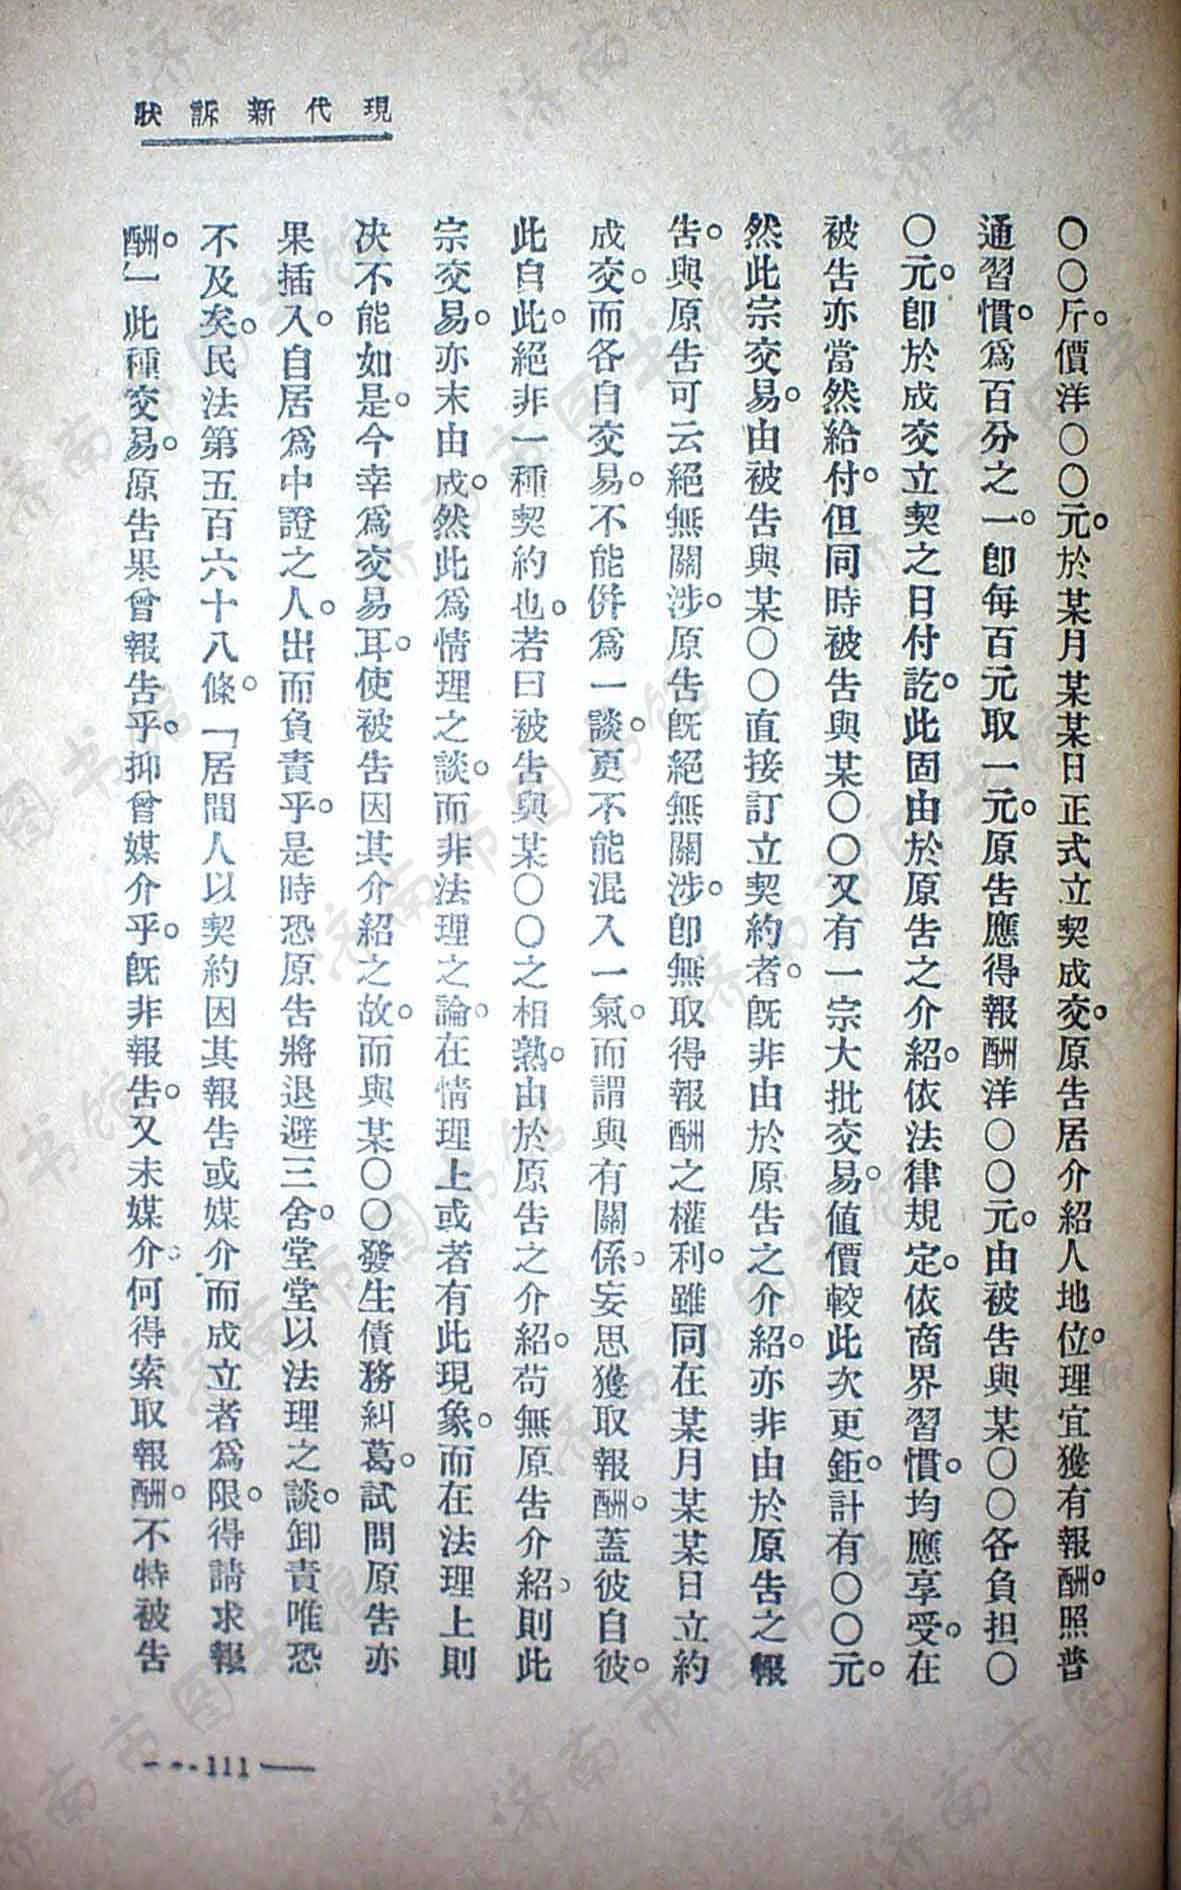 現代新訴狀
〇〇斤。價洋〇〇元。於某月某某日正式立契成交。原告居介紹人地位。理宜獲有報酬。照普
通習慣。爲百分之一。卽每百元取一元。原告應得報酬洋〇〇元。由被告與某〇〇各負担〇
〇元。卽於成交立契之日付訖。此固由於原告之介紹。依法律規定。依商界習慣。均應享受。在
被告亦當然給付。但同時被告與某〇〇又有一宗大批交易。値價較此次更鉅。計有〇〇元。
然此宗交易。由被告與某〇〇直接訂立契約者。旣非由於原告之介紹。亦非由於原告之報
告。與原告可云絕無關涉。原告旣絕無關涉。卽無取得報酬之權利。雖同在某月某某日立約
成交。而各自交易。不能倂爲一談。更不能混入一氣。而謂與有關係。妄思獲取報酬。蓋彼自彼。
此自此。絕非一種契約也。若曰被告與某〇〇之相熟。由於原告之介紹。苟無原告介紹。則此
宗交易。亦末由成。然此爲情理之談。而非法理之論。在情理上或者有此現象。而在法理上則
決不能如是。今幸爲交易耳。使被告因其介紹之故。而與某〇〇發生債務糾葛。試問原告亦
果插入。自居爲中證之人。出而負責乎。是時恐原告將退避三舍。堂堂以法理之談。卸責唯恐
不及矣。民法第五百六十八條。「居間人以契約因其報告或媒介而成立者爲限。得請求報
酬。」此種交易。原告果曾報告乎。抑曾媒介乎。旣非報告。又未媒介。何得索取報酬。不特被告
—111—
济南市图书馆